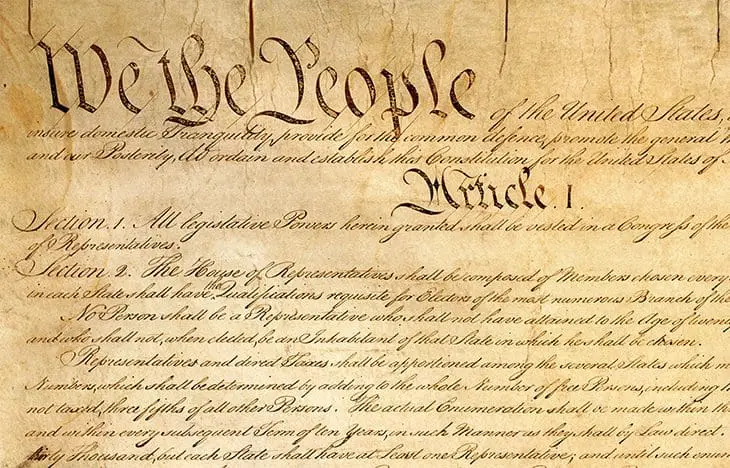 We the People of the United States,
insure domestic Tranquility, provide for the common defence, promote the general
and our Posterity, do ordain and establish this Constitution for the United States of
Article. I.
Section. 1. All legislative Powers herein granted shall be vested in a Congress of the
of Representatives.
Section. 2. The House of Representatives shall be composed of Members chosen every
in each State shall have the Qualifications requisite for Electors of the most numerous Branch of the
No Person shall be a Representative who shall not have attained to the Age of twenty
and who shall not, when elected, be an Inhabitant of that State in which he shall be chosen.
Representatives and direct Taxes shall be apportioned among the several States which
Numbers, which shall be determined by adding to the whole Number of free Persons, including
not taxed, three fifths of all other Persons. The actual Enumeration shall be made within
and within every subsequent Term of ten Years, in such Manner as they shall by Law direct.
thirty Thousand, but each State shall have at Least one Representative; and until such